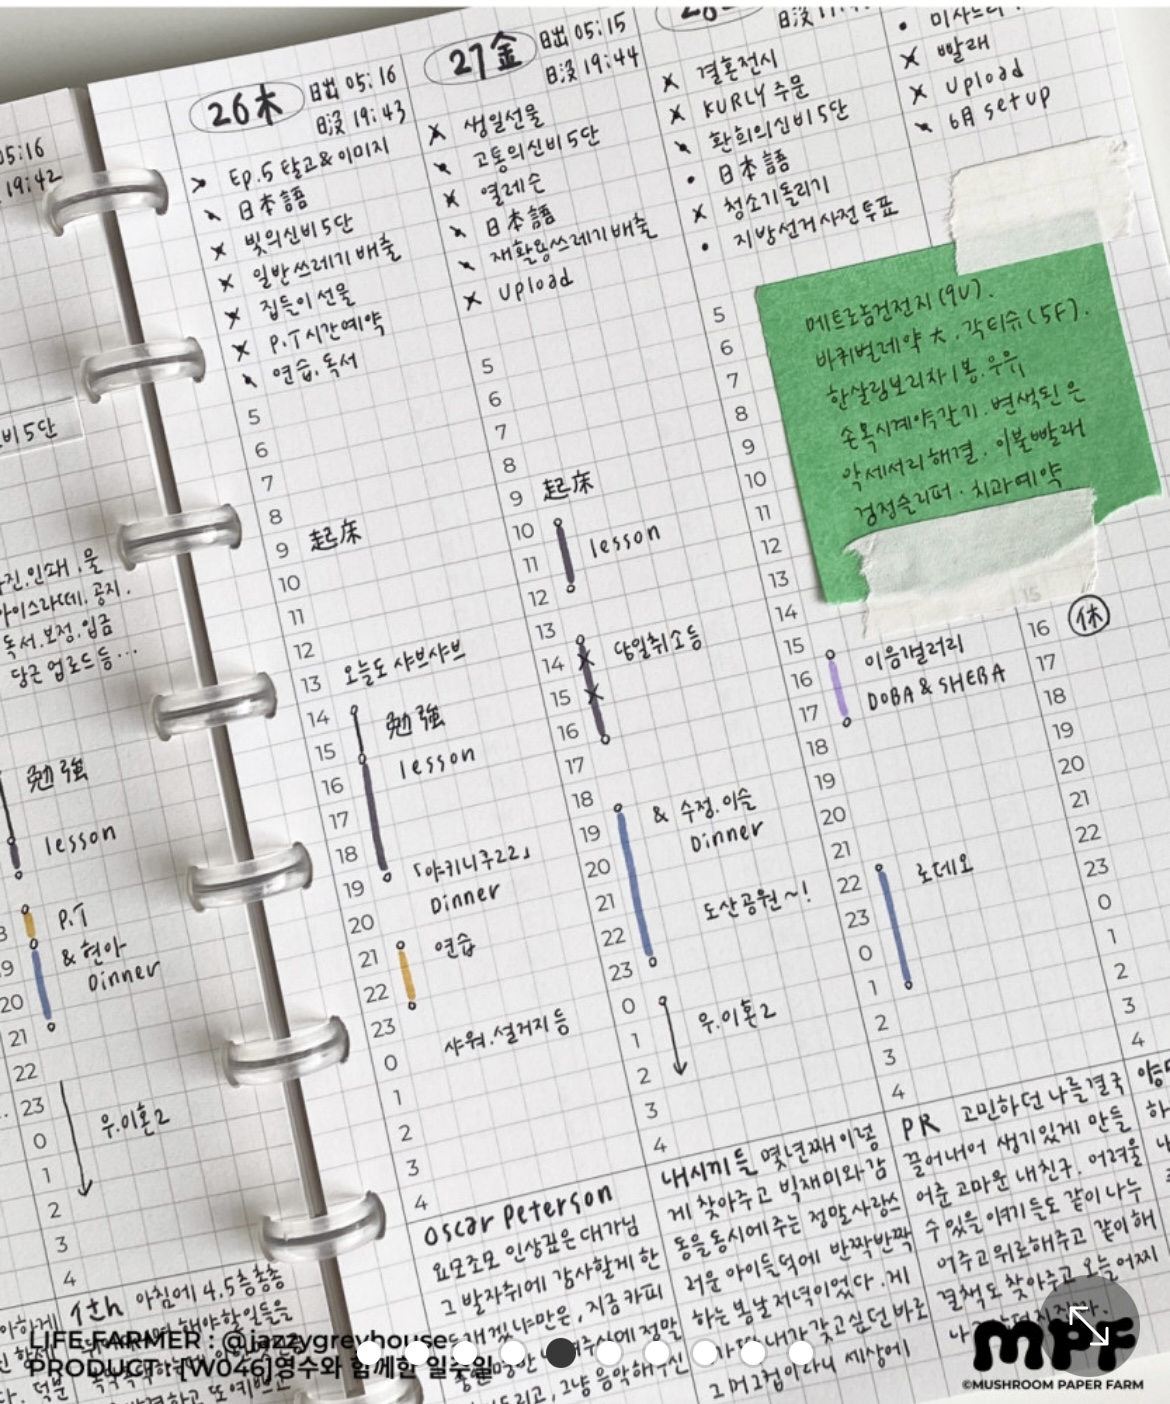 05:16
19:42
비 5단
진.인쇄.울
아이스라떼.공지.
독서.보정.입금
당근 업로드 등...
勉強
lesson
P.T
& 현아
Dinner
19
20
21
22
23
0
1
2
3
4
우.이혼2
아침에 4.5층 총총
해야할일들을
26 木
日出 05:16
日没 19:43
Ep.5 탈고 & 이미지
日本語
빛의신비 5단
일반쓰레기 배출
집들이 선물
P.T 시간예약
연습.독서
5
6
7
8
9 起床
10
11
12
13 오늘도 샤브샤브
14
勉強
15
lesson
16
17
18
「야키니쿠22」
19
Dinner
20
연습
21
22
23
샤워.설거지 등
0
1
2
3
4
Oscar Peterson
요모조모 인상깊은 대가님
그 발자취에 감사할게 한
27 金
日出 05:15
日没 19:44
생일선물
고통의신비 5단
열레슨
日本語
재활용쓰레기 배출
Upload
5
6
7
8
9 起床
10
lesson
11
12
13
당일취소등
14
15
16
17
18
& 수정.이슬
19
Dinner
20
21
도산공원~!
22
23
0
우.이혼2
1
2
3
4
내시끼들 몇년째 이렇
게 찾아주고 빅재미와 감
동을 동시에 주는 정말 사랑스
러운 아이들덕에 반짝반짝
하는 봄날 저녁이었다. 게
다가 내가 갖고싶던 바로
그 머그컵이라니 세상에
결혼전시
KURLY 주문
환희의신비 5단
日本語
청소기돌리기
지방선거 사전투표
5
6
7
8
9
10
11
12
13
14
15
이음갤러리
16
DOBA & SHEBA
17
18
19
20
21
22
로데오
23
0
1
2
3
4
PR 고민하던 나를 결국
끌어내어 생기있게 만들
어준 고마운 내친구. 어려울
수 있을 얘기들도 같이 나누
어주고 위로해주고 같이 해
결책도 찾아주고 오늘 어찌
빨래
Upload
6月 setup
메트로놈건전지(9V).
바퀴벌레약 大. 각티슈(5F).
한살림보리차1봉.우유
손목시계약갈기.변색된 은
악세서리 해결.이불빨래
검정슬리퍼.치과예약
15
16 休
17
18
19
20
21
22
23
0
1
2
3
4
LIFE FARMER : @jazzygreyhouse
PRODUCT : [W046]영수와 함께한 일주일
MPF
©MUSHROOM PAPER FARM